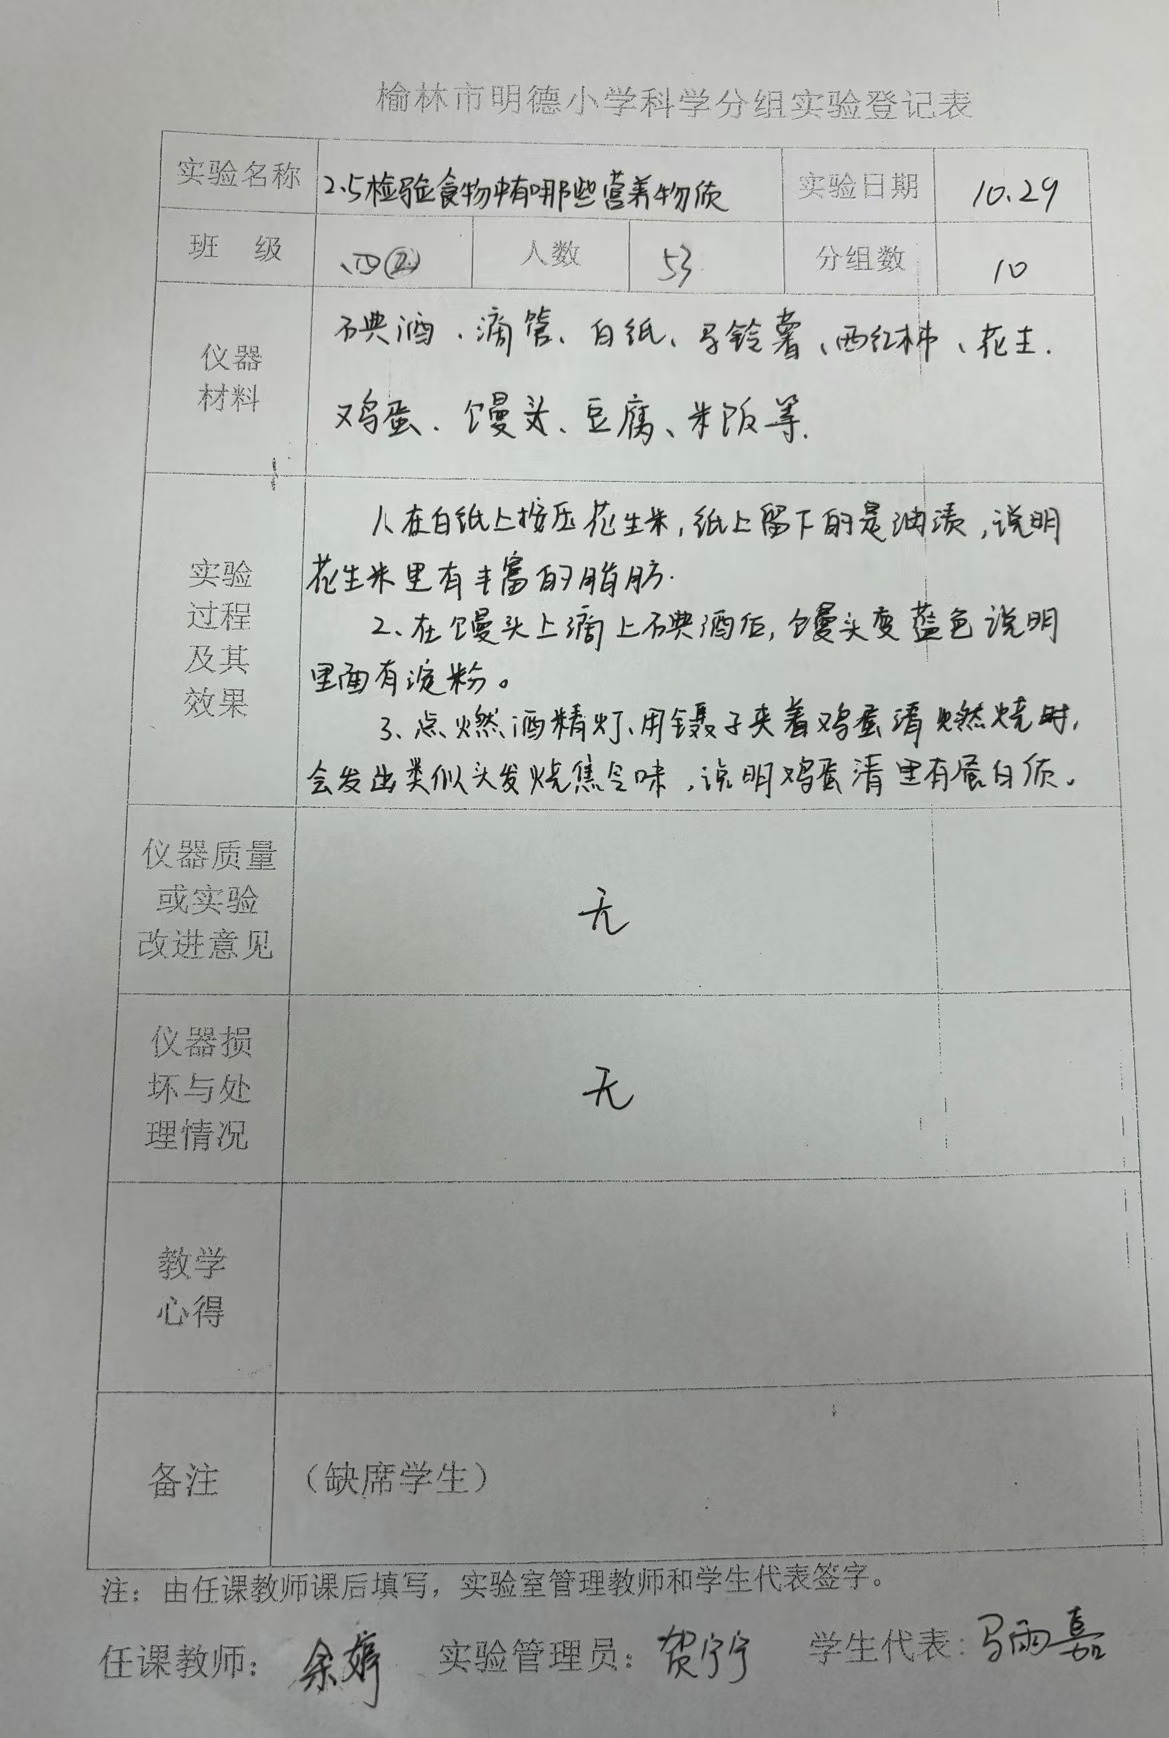 榆林市明德小学科学分组实验登记表
实验名称 2.5检验食物中有哪些营养物质 实验日期 10.29
班 级 四② 人数 53 分组数 10
仪器
材料
碘酒、滴管、白纸、马铃薯、西红柿、花生.
鸡蛋、馒头、豆腐、米饭等.
实验
过程
及其
效果
1、在白纸上按压花生米,纸上留下的是油渍,说明
花生米里有丰富的脂肪.
2、在馒头上滴上碘酒后,馒头变蓝色说明
里面有淀粉。
3、点燃酒精灯、用镊子夹着鸡蛋清燃烧时,
会发出类似头发烧焦气味,说明鸡蛋清里有蛋白质。
仪器质量
或实验
改进意见
无
仪器损
坏与处
理情况
无
教学
心得
备注
（缺席学生）
注：由任课教师课后填写，实验室管理教师和学生代表签字。
任课教师： 余婷 实验管理员：贺宁宁 学生代表:马雨嘉